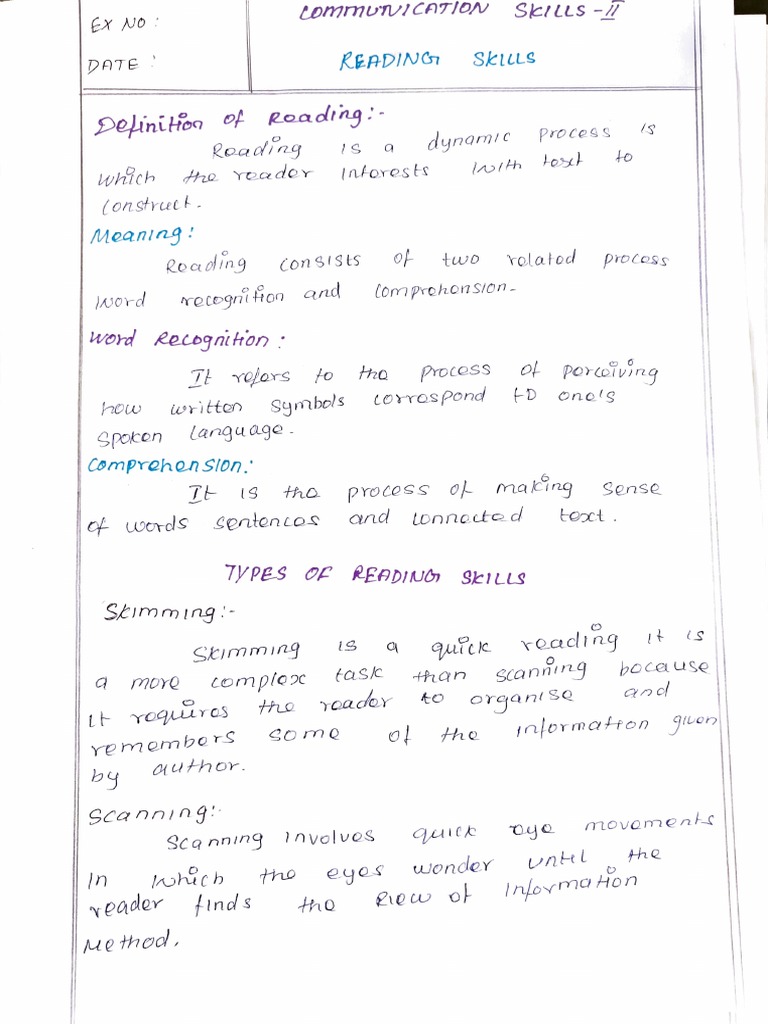 EX NO :
COMMUNICATION SKILLS - II
DATE :
READING SKILLS
Definition of Reading:-
Reading is a dynamic process is
which the reader interests with text to
construct.
Meaning:
Reading consists of two related process
word recognition and comprehension.
Word Recognition:
It refers to the process of perceiving
how written symbols correspond to one's
spoken language.
Comprehension:
It is the process of making sense
of words sentences and connected text.
TYPES OF READING SKILLS
Skimming:-
Skimming is a quick reading it is
a more complex task than scanning because
it requires the reader to organise and
remembers some of the information given
by author.
Scanning:-
Scanning involves quick eye movements
in which the eyes wonder until the
reader finds the of information
Method.